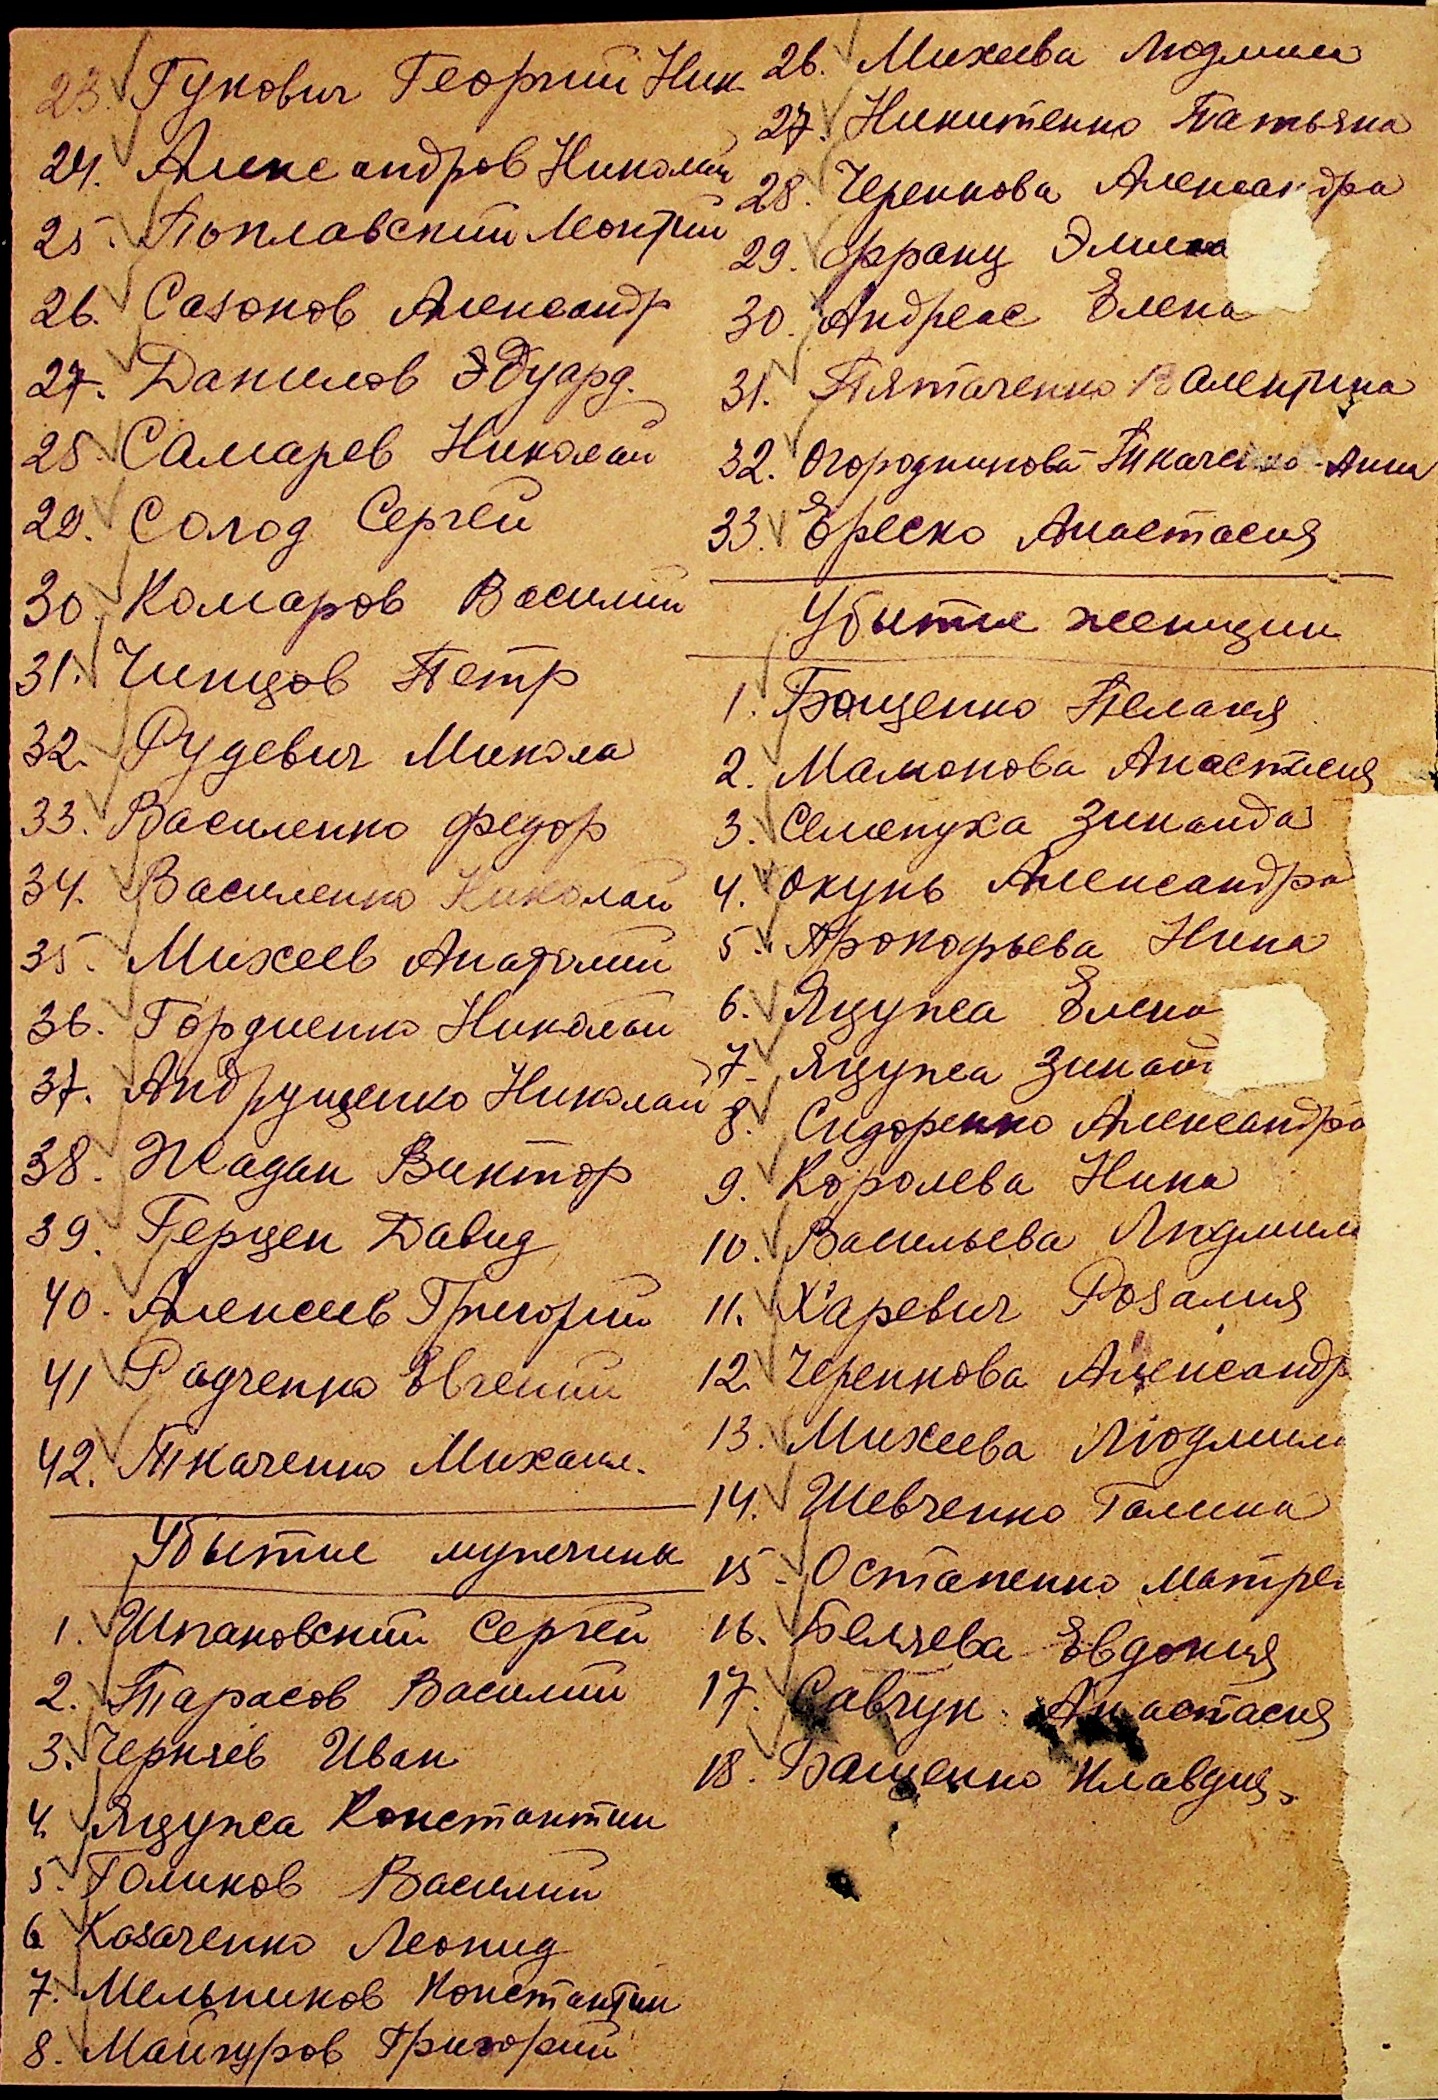 23. Гукович Георгий Ник.
24. Александров Николай
25. Поплавский Леонтий
26. Сазонов Александр
27. Данилов Эдуард.
28. Самарев Николай
29. Солод Сергей
30. Комаров Василий
31. Чипцов Петр
32. Рудевич Микола
33. Василенко Федор
34. Василенко Николай
35. Михеев Анатолий
36. Гордиенко Николай
37. Андрущенко Николай
38. Жадан Виктор
39. Герцен Давид
40. Алексеев Григорий
41 Радченко Евгений
42. Ткаченко Михаил.
Убытие мужчин
1. Шпаковский Сергей
2. Тарасов Василий
3. Черняев Иван
4. Яцужа Константин
5. Голиков Василий
6 Козаченко Леонид
7. Мельников Константин
8. Майчуров Григорий
26. Михеева Людмила
27. Никитенко Татьяна
28. Черенкова Александра
29. Франц Элина
30. Андреас Елена
31. Пятаченко Валентина
32. Огородникова-Ткаченко Анна
33. Ереско Анастасия
Убытие женщин
1. Бащенко Пелагея
2. Мамонова Анастасия
3. Семепуха Зинаида
4. Окунь Александра
5. Прокофьева Нина
6. Яцужа Елена
7. Яцужа Зинаи
8. Сидоренко Александра
9. Королева Нина
10. Васильева Людмила
11. Харевич Розалия
12. Черенкова Александр
13. Михеева Людмила
14. Шевченко Галина
15. Остапенко Матре
16. Беляева Евдокия
17. Савчук Анастасия
18. Бащенко Клавдия.